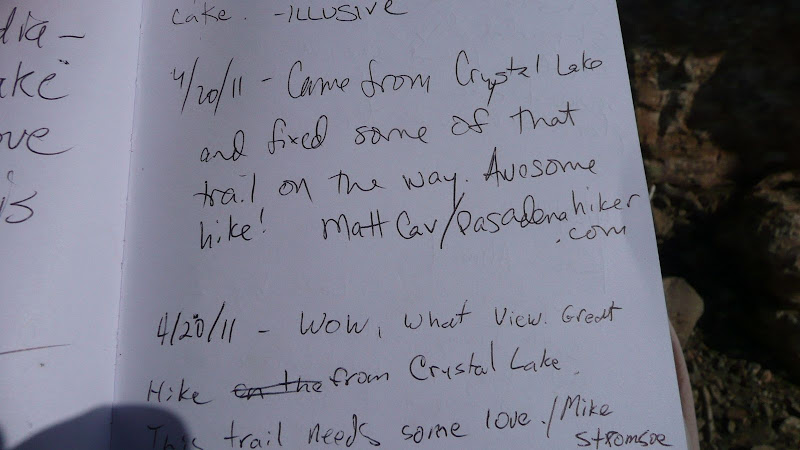 dia-
ake"
ove
is
Lake. -ILLUSIVE
4/20/11 - Came from Crystal Lake
and fixed some of that
trail on the way. Awosome
hike! Matt Cav/pasadenahiker
.com
4/20/11 - Wow, what view. Great
Hike on the from Crystal Lake.
This trail needs some love./Mike
stromsoe